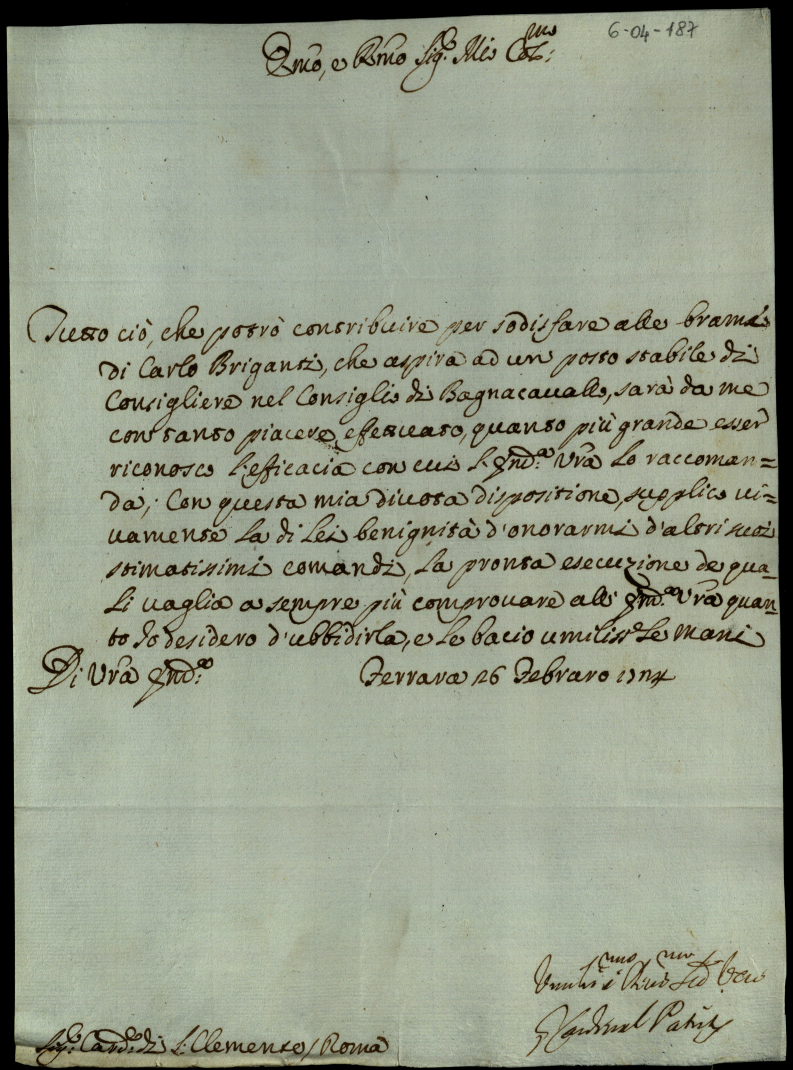 6-04-187
Emo, e Rmo Sig.r Mio Oss.mo
Tutto ciò, che potrò contribuire per sodisfare alle brame
di Carlo Briganti, che aspira ad un posto stabile di
Consigliere nel Consiglio di Bagnacavallo, sarà da me
con tanto piacere effettuato, quanto più grande esser
riconosco l'efficacia con cui l'Em.a Vra lo raccoman=
da; Con questa mia divota dispositione, supplico vi=
vamente la di Lei benignità d'onorarmi d'altri suoi
stimatissimi comandi, la pronta esecuzione de qua-
li vaglia a sempre più comprovare all' Em.a Vra quan-
to Io desidero d'ubbidirla, e le bacio umiliss.e le mani
Di Vra Em.a Ferrara 26 Febraro 1724
Umiliss.mo Ser
Cardinal Patrizj
Sig.r Card.l di S. Clemente / Roma